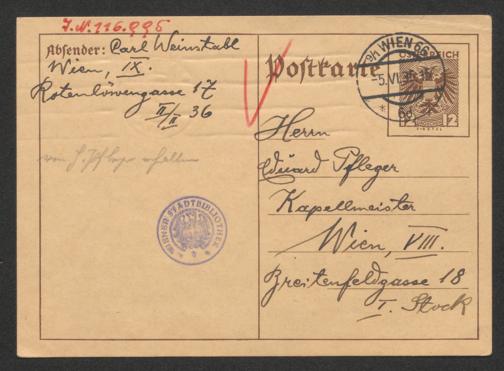 J.N. 116.995
Absender: Carl Weinstabl
Wien, IX.
Rotenlöwengasse 17
II/II 36
Postkarte
WIEN 66
-5.VI.
* 66
ÖSTERREICH
12 12
Herrn
Eduard Pfleger
Kapellmeister
Wien, VIII.
Breitenfeldgasse 18
I. Stock
von H. Pfleger erhalten
WIENER STADTBIBLIOTHEK